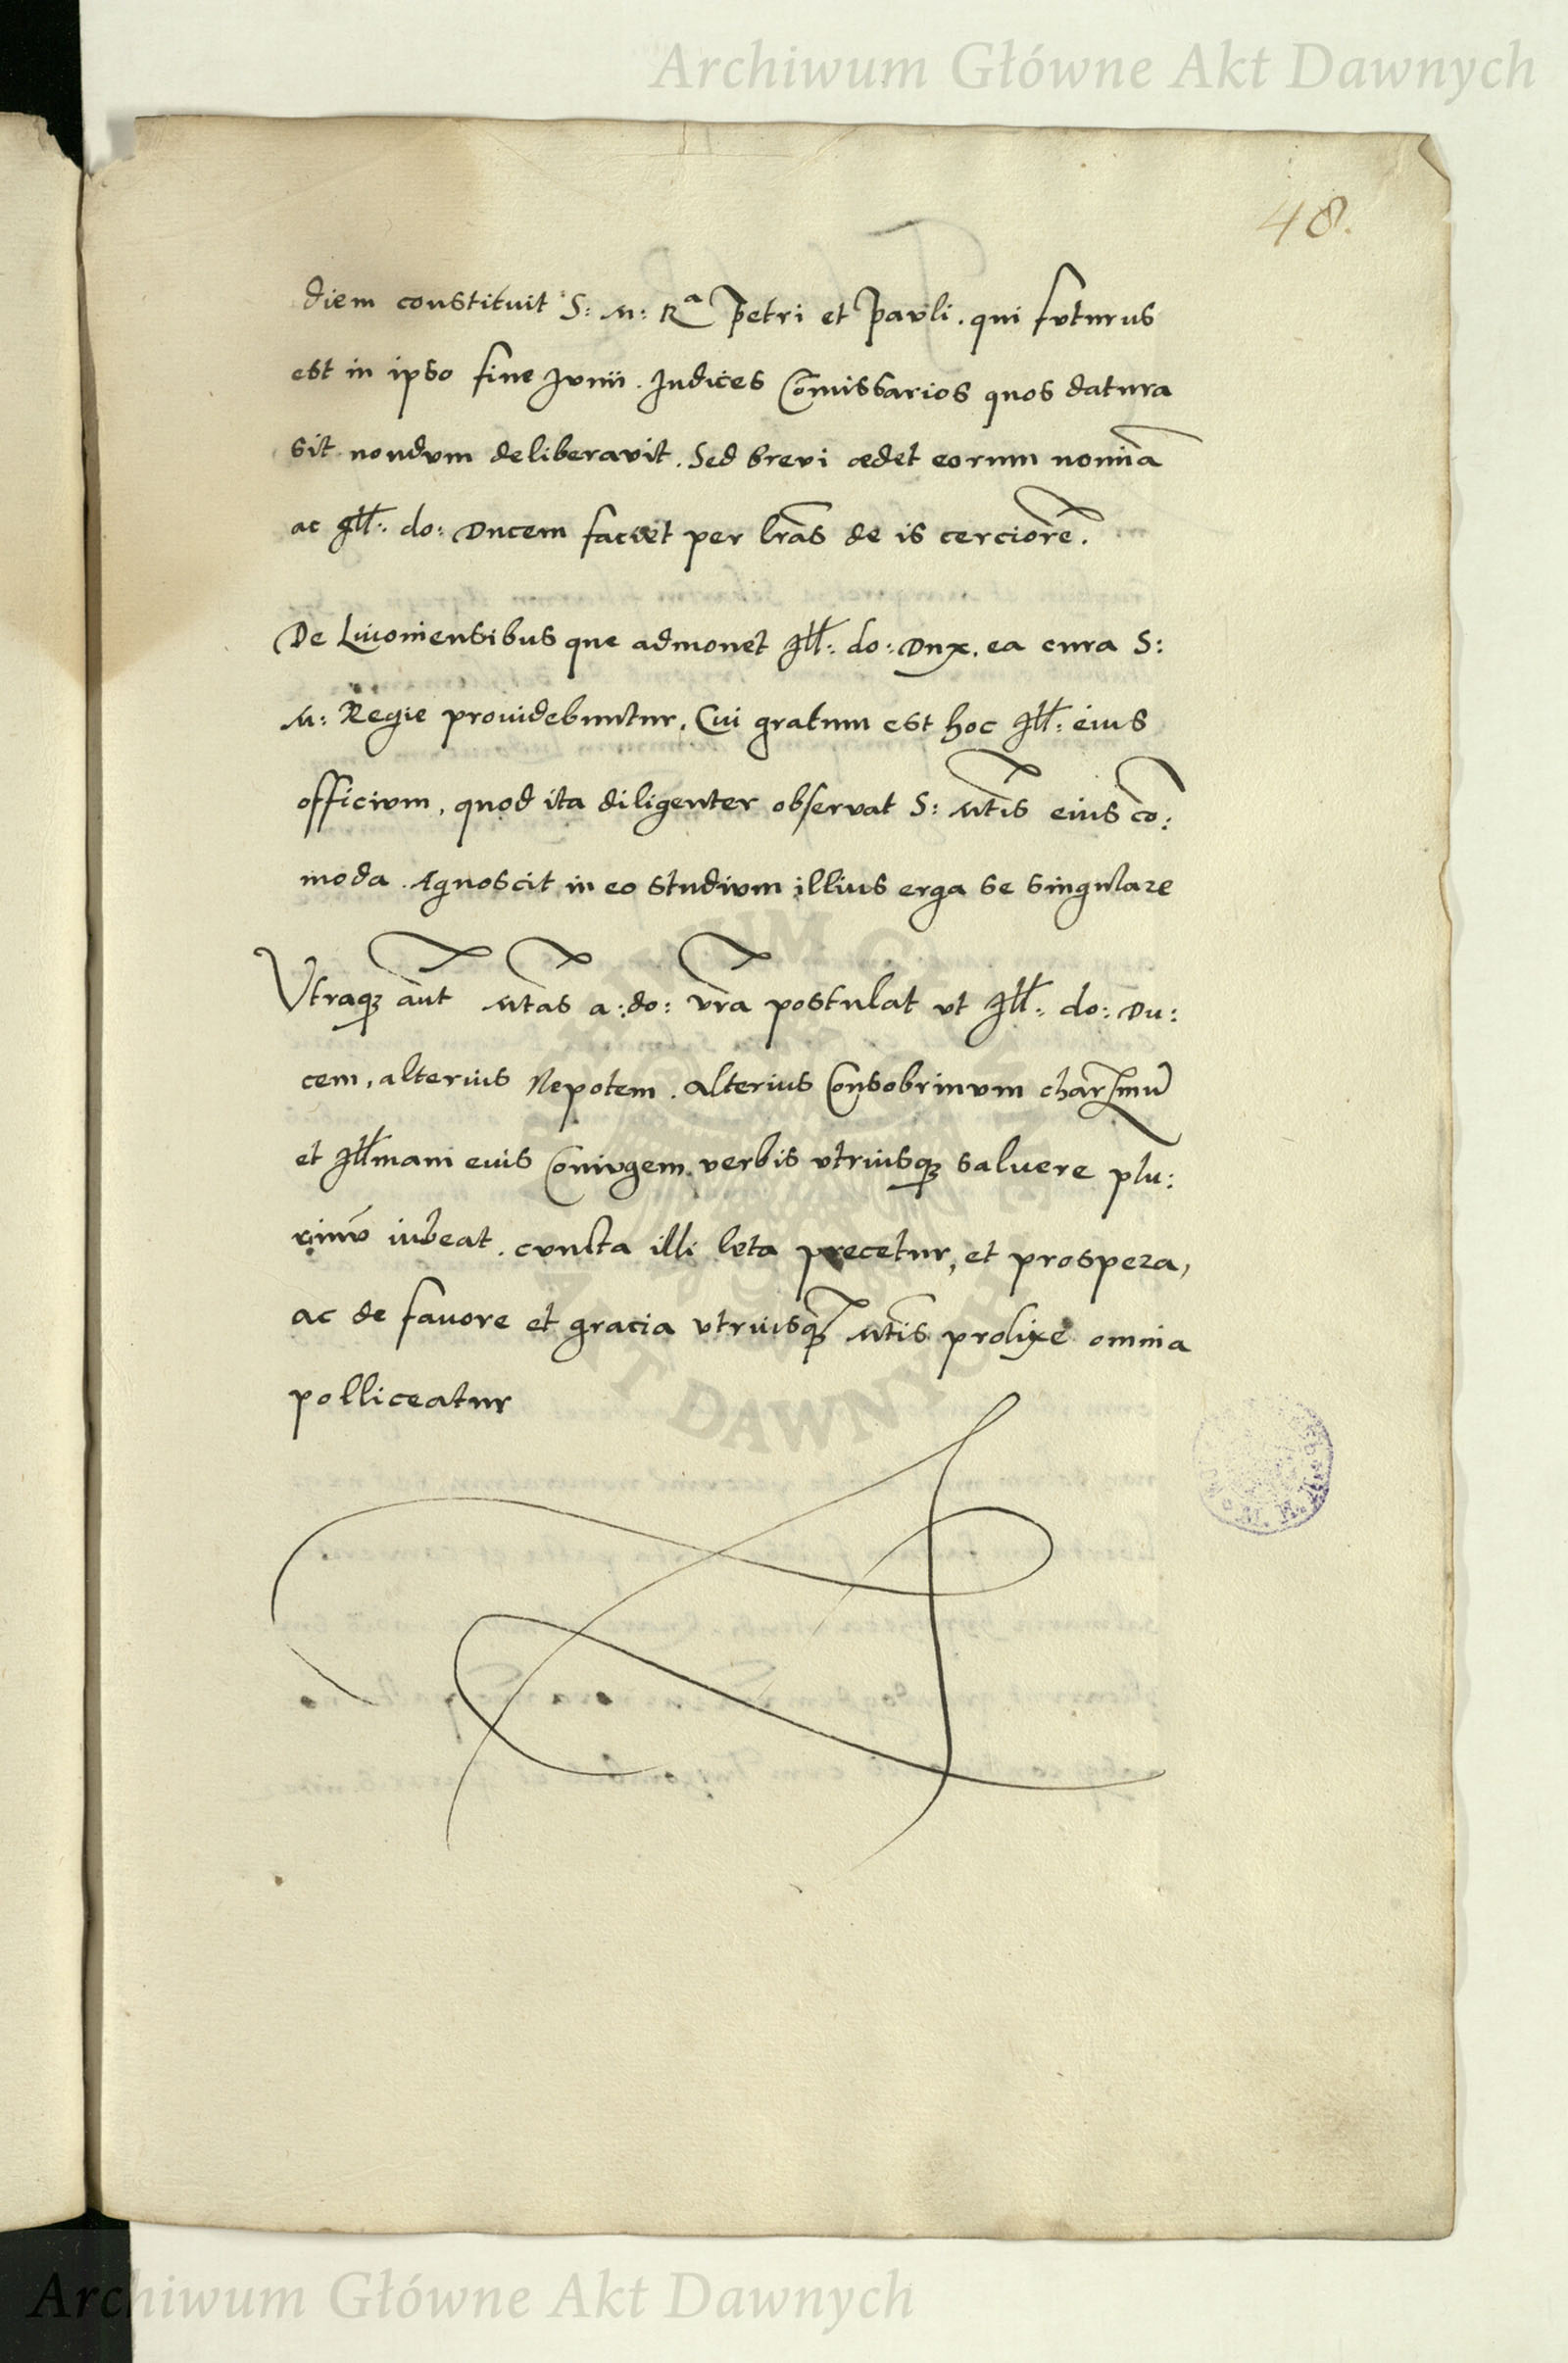 Archiwum Główne Akt Dawnych
48.
diem constituit S: M: Rᵃ Petri et Pauli. qui futurus
est in ipso fine Junii. Judices Comissarios quos datura
sit nondum deliberavit. Sed brevi ædet eorum nomīa
ac Jll: do: Ducem faciet per lr̄as de is cerciorē.
De Livoniensibus que admonet Jll: do: Dux. ea cura S:
M: Regie providebuntur. Cui gratum est hoc Jll: eius
officium, quod ita diligenter observat S: Mt̄is eius cō:
moda. Agnoscit in eo studium illius erga se singulare
Utraqꝫ aūt Mt̄as a: do: vr̄a postulat ut Jll: do: Du:
cem, alterius Nepotem. alterius Consobrinum charˢmū
et Jllmam eius Coniugem verbis utriusqꝫ salvere plu:
rimū iubeat. cuncta illi lęta precetur, et prospera,
ac de favore et gracia utriusqꝫ Mt̄is prolixe omnia
polliceatur
ARCHIWUM GŁÓWNE AKT DAWNYCH
Archiwum Główne Akt Dawnych